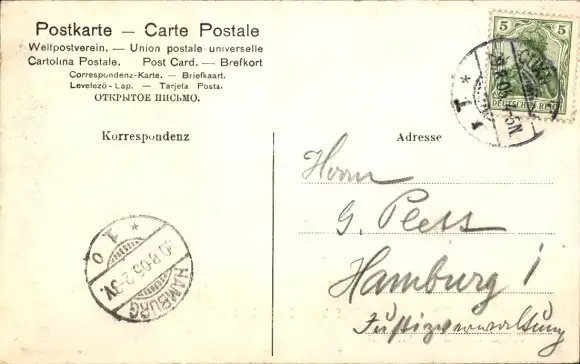 Postkarte — Carte Postale
Weltpostverein. — Union postale universelle
Cartolina Postale. Post Card. — Brefkort
Correspondenz-Karte. — Briefkaart.
Levelező-Lap. — Tarjeta Posta.
ОТКРЫТОЕ ПИСЬМО.
Korrespondenz
Adresse
5 5
DEUTSCHES REICH
* T *
4-5N.
Herrn
G. Plett
Hamburg 1
Justizverwaltung
* 1 O
8.05.2-3V
HAMBURG